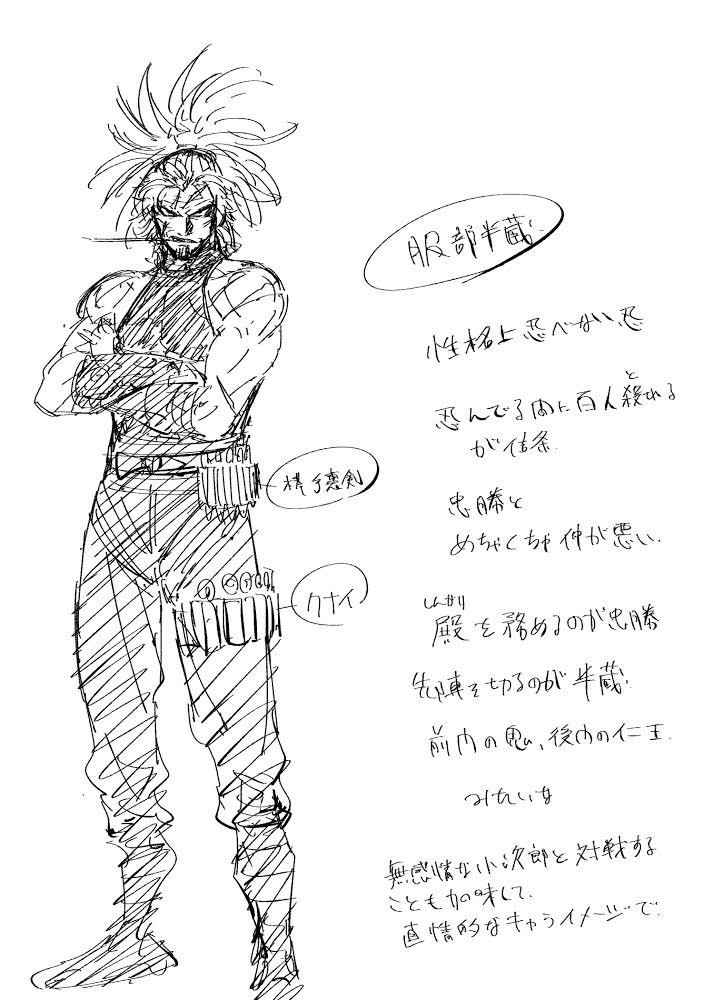 服部半蔵
性格上忍べない忍
忍んでる内に百人殺れる
と
が信条
棒手裏剣
忠勝と
めちゃくちゃ仲が悪い.
クナイ
しんがり
殿を務めるのが忠勝
先陣を切るのが半蔵.
前門の鬼、後門の仁王.
みたいな
無感情な小次郎と対戦する
ことも加味して.
直情的なキャライメージで.